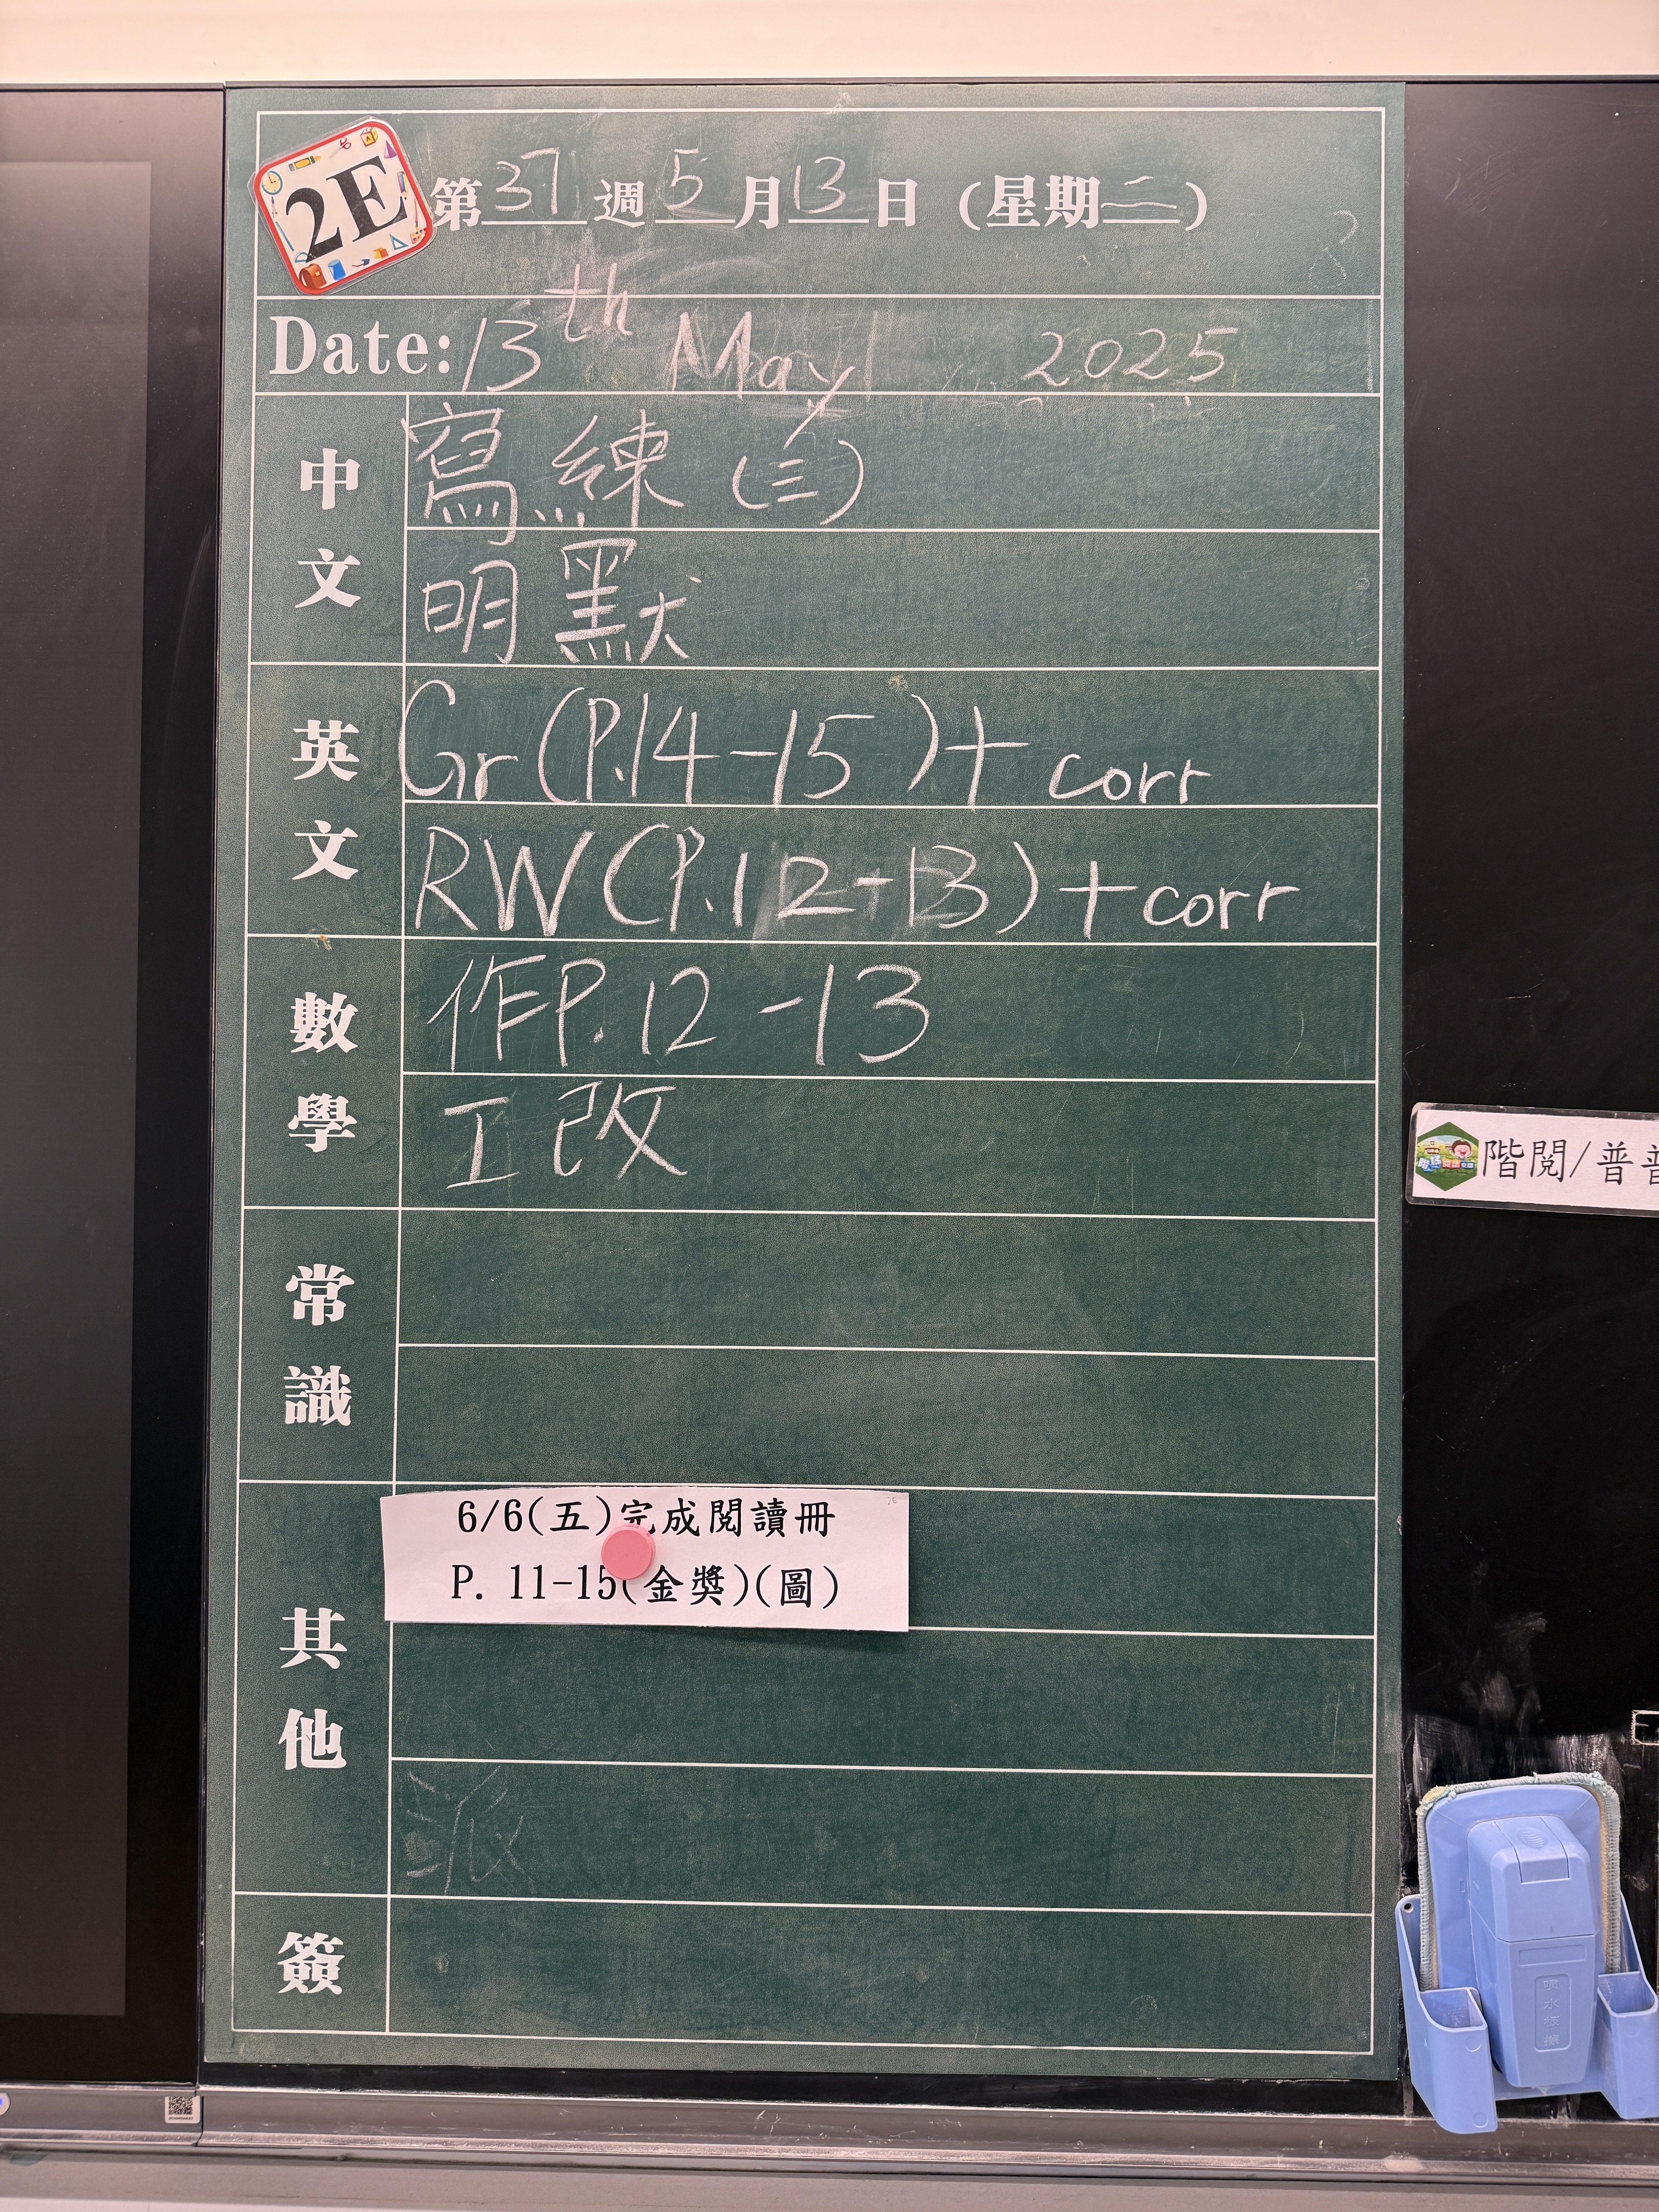 2E
第37週5月13日（星期二）
Date: 13th May 2025
中文
寫練(三)
明默
英文
Gr(P.14-15)+ corr
RW(P.12-13)+corr
數學
作P.12-13
工改
常識
其他
6/6(五)完成閱讀冊
P. 11-15(金獎)(圖)
簽
階閱/普
噴水板擦